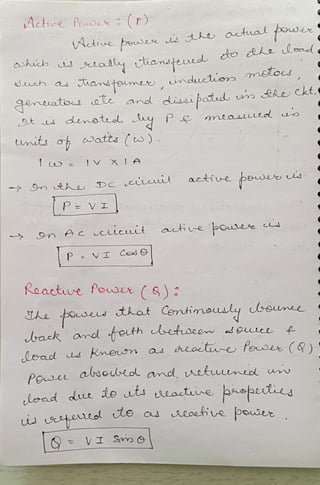 Active Power : (P)
Active power is the actual power
which is really transferred to the load
such as transformer, induction motors,
generators etc and dissipated in the ckt.
It is denoted by P & measured in
units of watts (W).
1 W = 1V X 1A
→ In the DC circuit active power is
P = V I
→ In AC circuit active power is
P = V I Cosθ
Reactive Power (Q) :
The powers that Continously bounce
back and forth between source &
load is known as reactive Power (Q)
Power absorbed and returned in
load due to its reactive properties
is referred to as reactive power.
Q = V I Sinθ